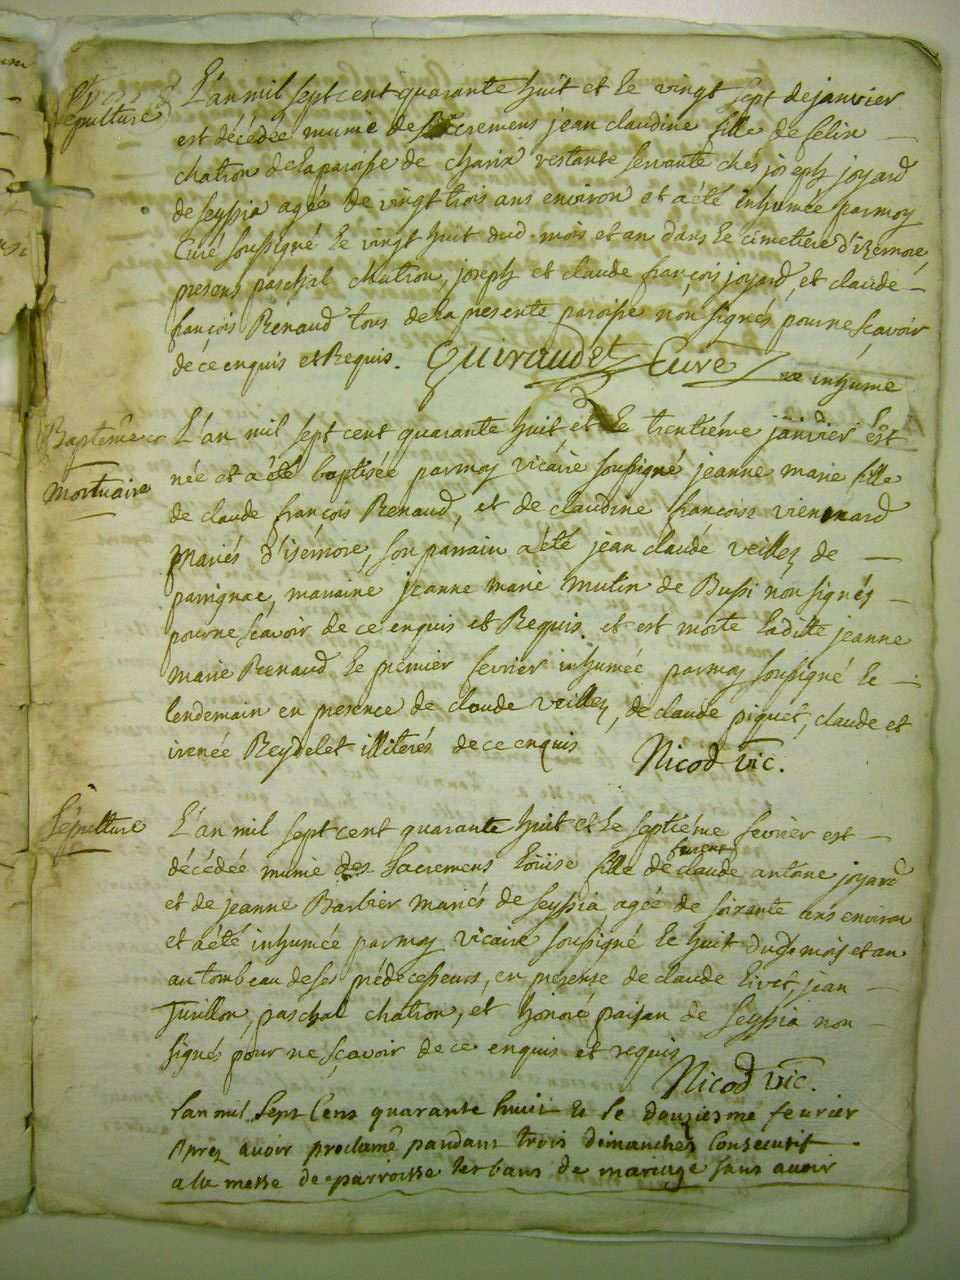 Sepulture
L'an mil sept cent quarante huit et le vingt sept de janvier
est décédée munie de Sacremens jean claudine fille de félix
chatron de la paroisse de charix restante servante chés joseph joyard
de seyssia agée de vingt trois ans environ et a été inhumée par moy
Curé soussigné le vingt huit dud. mois et an dans le cimetière d'izernore,
presens paschal chatron, joseph et claude françois joyard, et claude
françois Renaud tous de la presente paroisse non signés pour ne scavoir
de ce enquis et Requis. Guiraudet Curé
inhumé
Baptême et
mortuaire
L'an mil sept cent quarante huit et le trentiéme janvier est
née et a été baptisée par moy vicaire soussigné jeanne marie fille
de claude françois Renaud, et de claudine françoise
mariés d'isernore, son parrain a été jean claude veillez de
parrignac, maraine jeanne marie mutin de Bussi non signés
pour ne scavoir de ce enquis et Requis. et est morte laditte jeanne
marie Renaud le premier fevrier inhumée par moy soussigné le
lendemain en presence de claude veillez, de claude piquet, claude et
irenée Reydelet illiterés de ce enquis
Nicod vic.
Sépulture
L'an mil sept cent quarante huit et le septiéme fevrier est
décédée munie des Sacremens Loüise fille de claude antoine joyard
et de jeanne Barbier mariés de seyssia, agée de soixante ans environ
et a été inhumée par moy vicaire soussigné le huit dud. mois et an
au tombeau de ses prédecesseurs, en presense de claude Livet, jean
Juillon, paschal chatron, et honoré paisan de seyssia non
signés pour ne sçavoir de ce enquis et requis
Nicod vic.
Lan mil Sept Cens quarante huit & le douziesme feurier
apres avoir proclamé pandans trois dimanches Consecutif
a la messe de parroisse les bans de mariage sans avoir